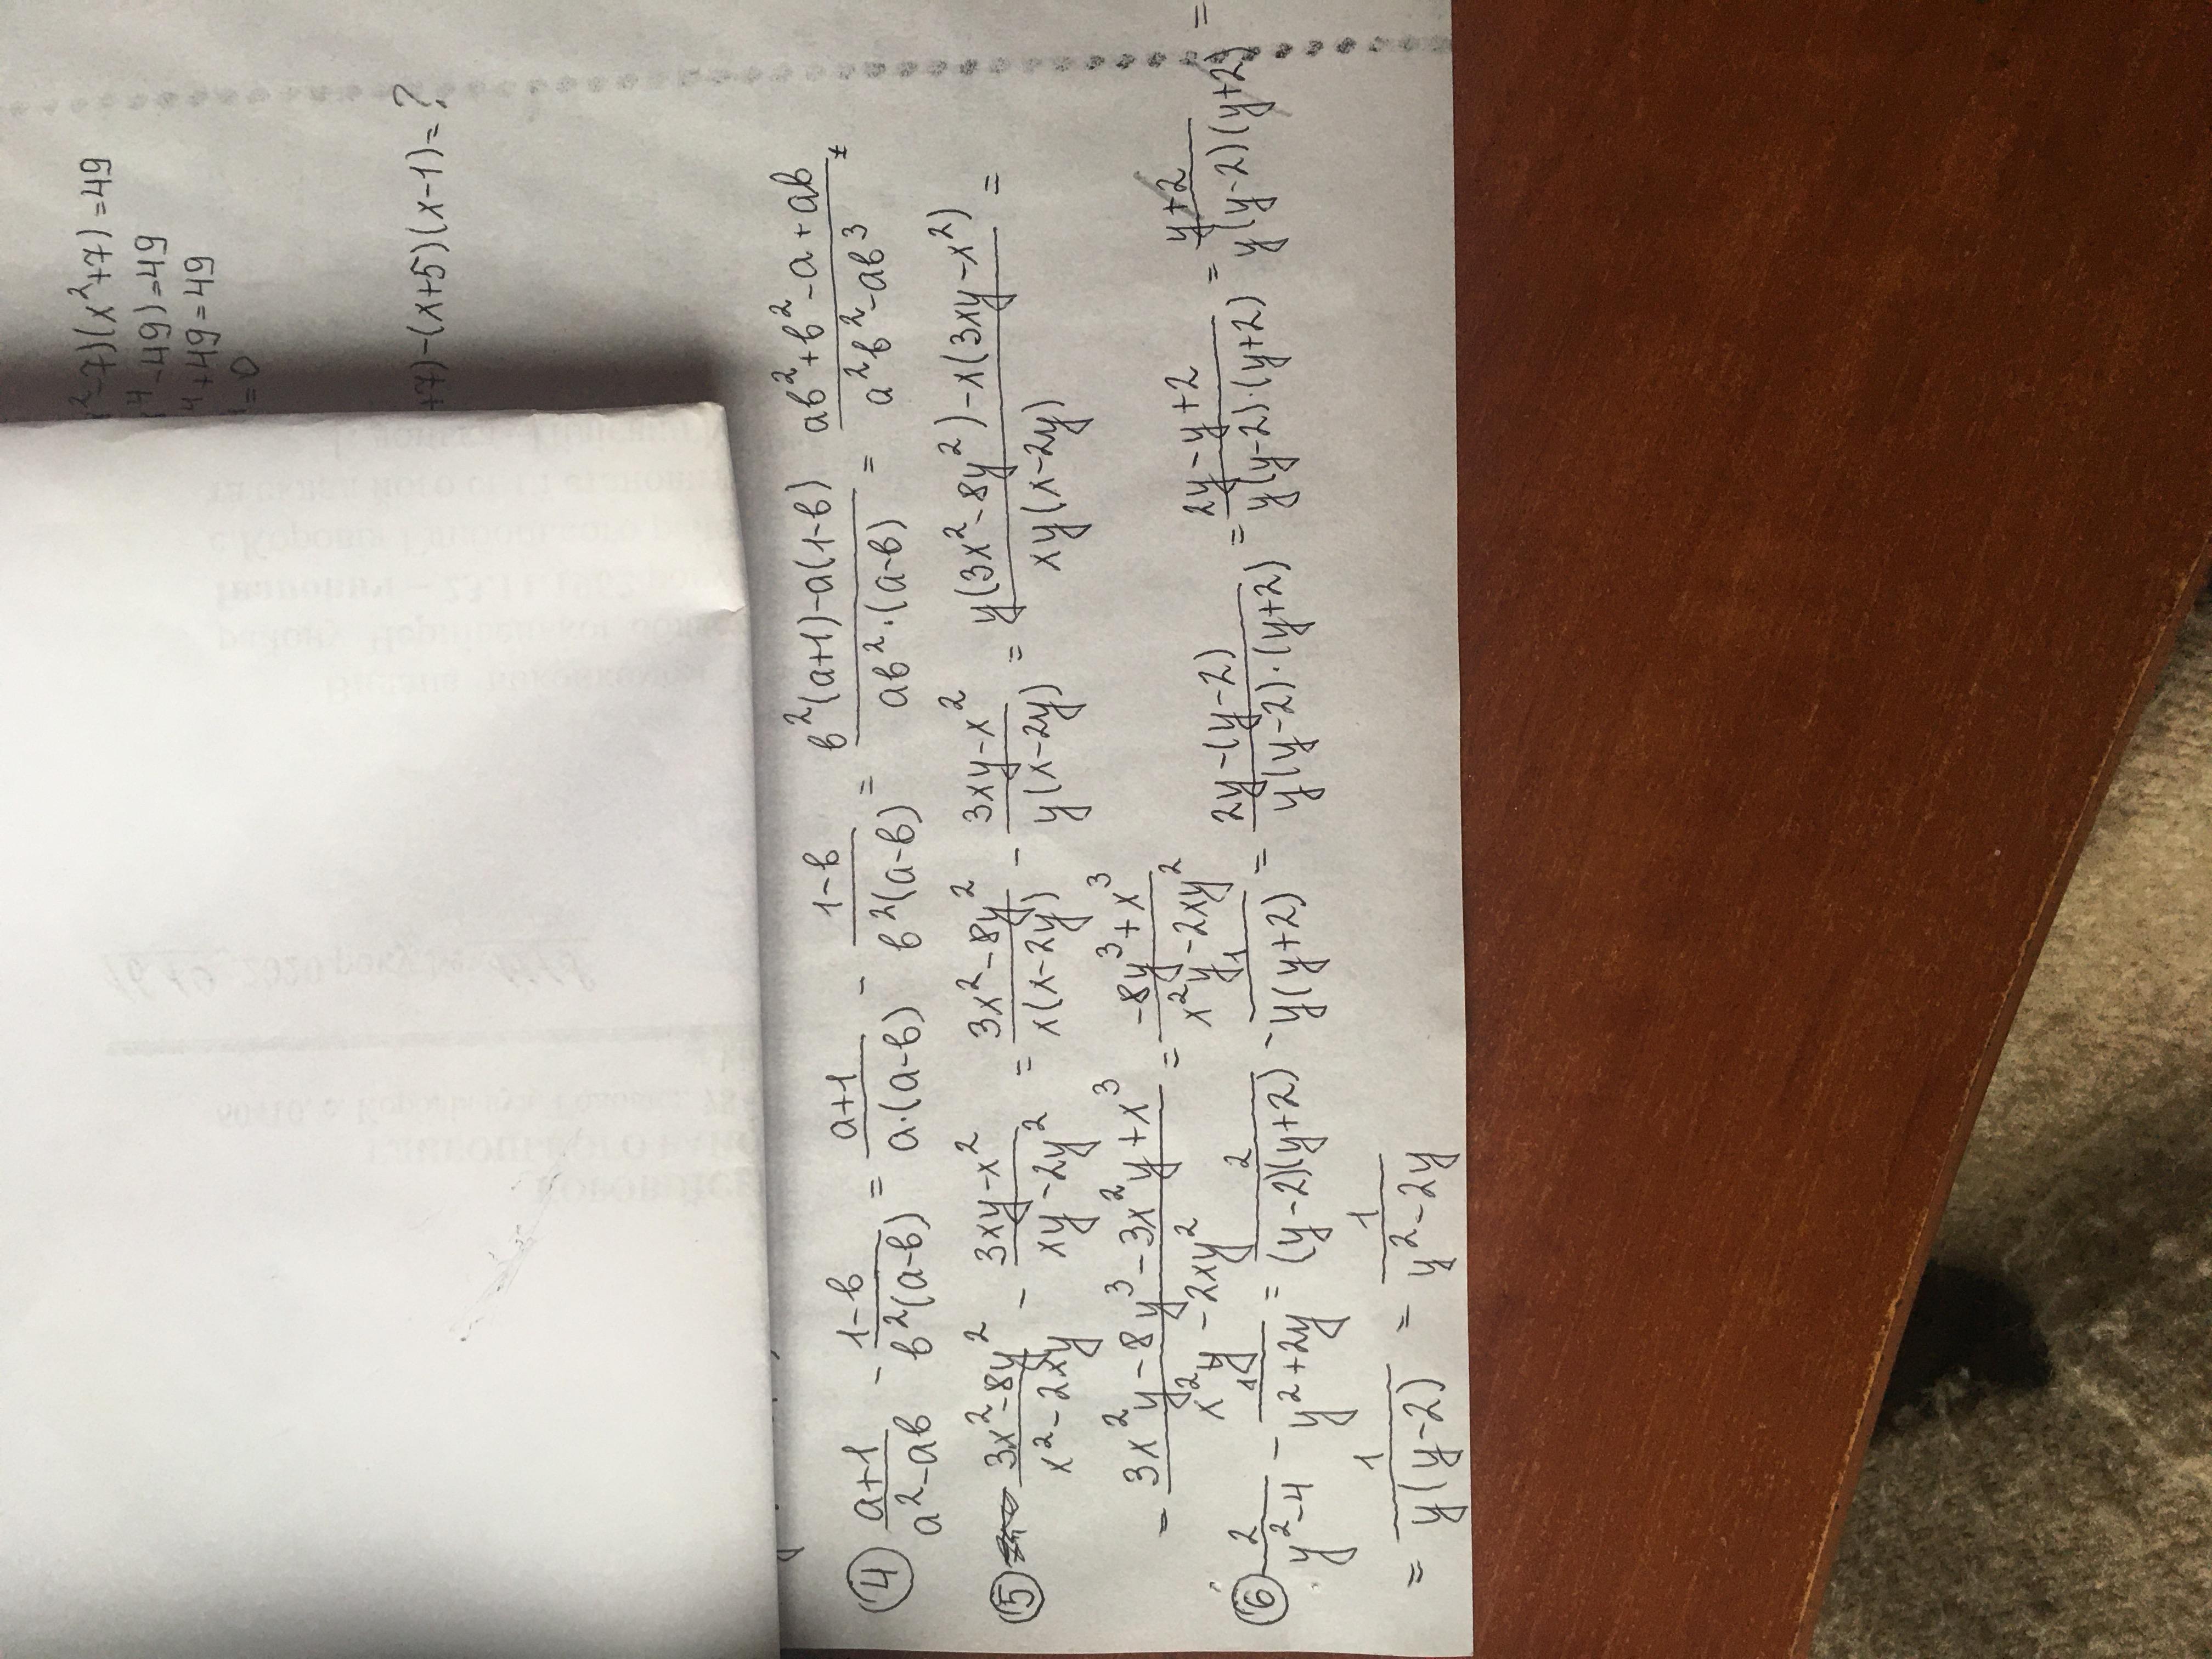 ²-7)(x²+7)=49
⁴-49)=49
⁴+49=49
=0
+7)-(x+5)(x-1)=?
④ (a+1)/(a²-ab) - (1-b)/(b²(a-b)) = (a+1)/(a·(a-b)) - (1-b)/(b²(a-b)) = (b²(a+1)-a(1-b))/(ab²·(a-b)) = (ab²+b²-a+ab)/(a²b²-ab³)
⑤ (3x²-8y²)/(x²-2xy) - (3xy-x²)/(xy-2y²) = (3x²-8y²)/(x(x-2y)) - (3xy-x²)/(y(x-2y)) = (y(3x²-8y²)-x(3xy-x²))/(xy(x-2y)) =
= (3x²y-8y³-3x²y+x³)/(x²y-2xy²) = (-8y³+x³)/(x²y-2xy²)
⑥ 2/(y²-4) - 1/(y²+2y) = 2/((y-2)(y+2)) - 1/(y(y+2)) = (2y-(y-2))/(y(y-2)·(y+2)) = (2y-y+2)/(y(y-2)·(y+2)) = (y+2)/(y(y-2)(y+2)) =
= 1/(y(y-2)) = 1/(y²-2y)